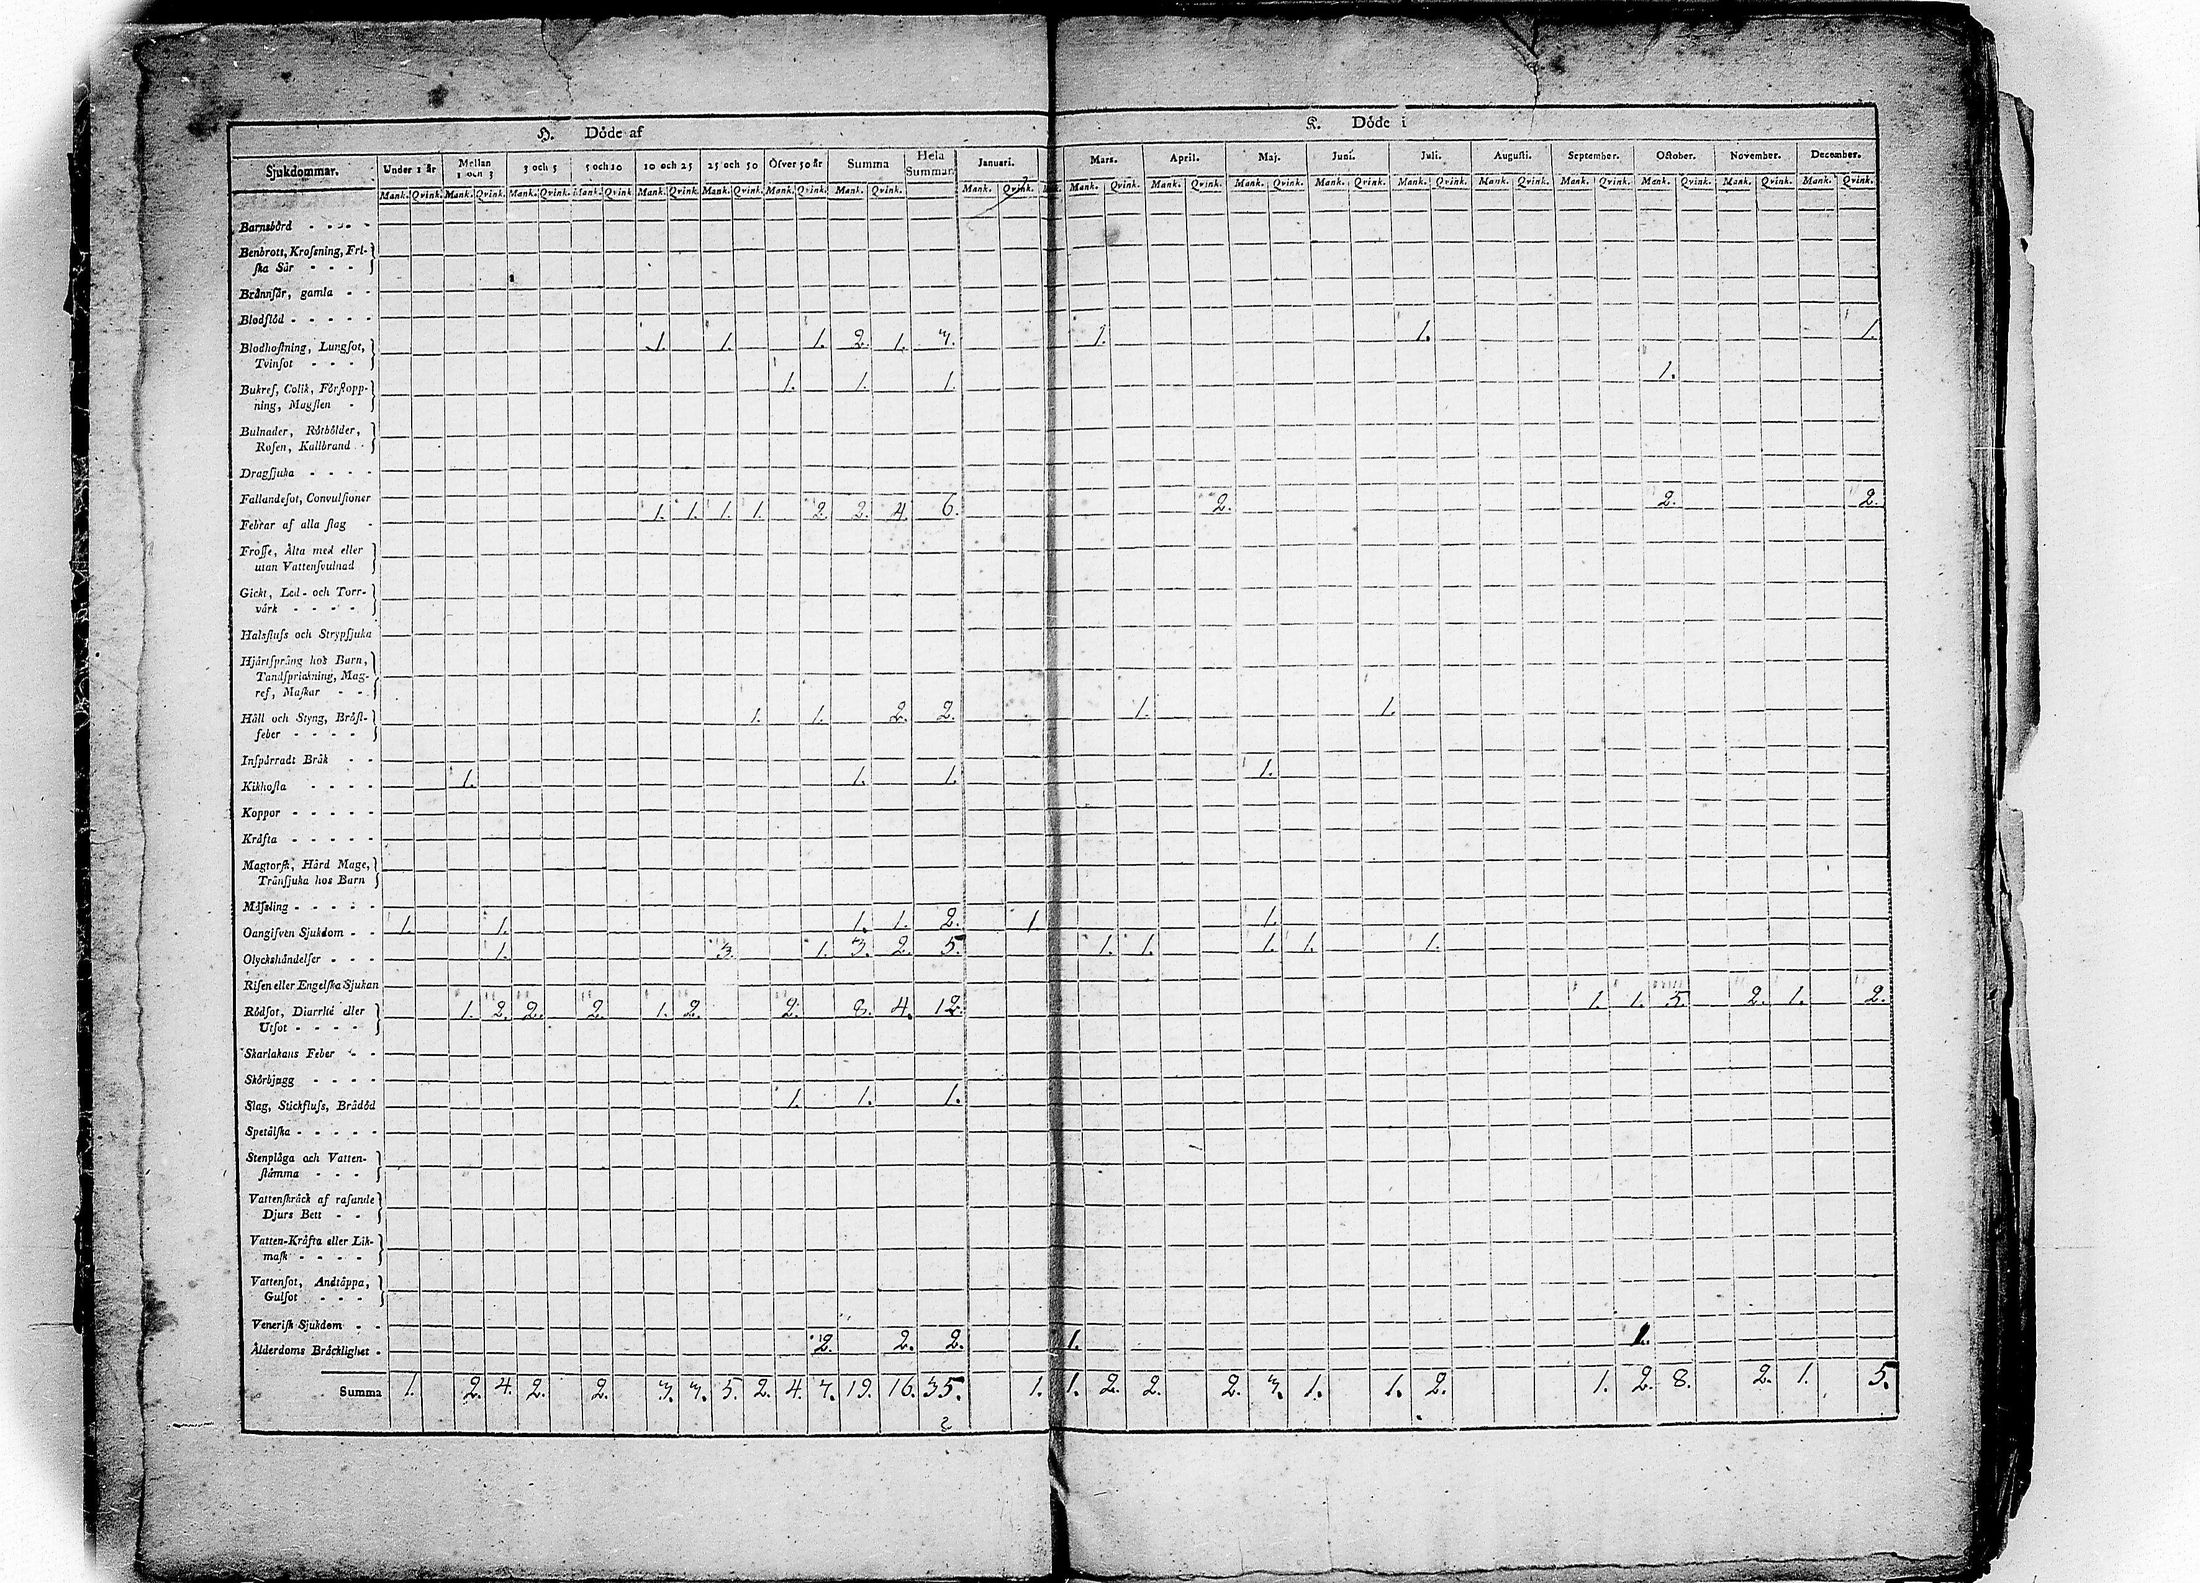 H. Döde af
K. Döde i
Sjukdommar. Under 1 år Mellan 1 och 3 3 och 5 5 och 10 10 och 25 25 och 50 Öfver 50 år Summa Hela Summan Januari. Mars. April. Maj. Juni. Juli. Augusti. September. October. November. December.
Mank. Qvink. Mank. Qvink. Mank. Qvink. Mank. Qvink. Mank. Qvink. Mank. Qvink. Mank. Qvink. Mank. Qvink. Mank. Qvink. Mank. Qvink. Mank. Qvink. Mank. Qvink. Mank. Qvink. Mank. Qvink. Mank. Qvink. Mank. Qvink. Mank. Qvink. Mank. Qvink. Mank. Qvink.
Barnsbörd
Benbrott, Krosſning, Fri-
ſka Sår
Brännſår, gamla
Blodflöd
Blodhoſtning, Lungſot, 1. 1. 1. 2. 1. 3. 1. 1. 1.
Tvinſot
Bukref, Colik, Förſtopp- 1. 1. 1. 1.
ning, Magſten
Bulnader, Rötbölder,
Roſen, Kallbrand
Dragſjuka
Fallandeſot, Convulſioner
Febrar af alla ſlag 1. 1. 1. 1. 2. 2. 4. 6. 2. 2. 2.
Froſſe, Älta med eller
utan Vattenſvulnad
Gickt, Led- och Torr-
värk
Halsfluſs och Strypſjuka
Hjärtſprång hos Barn,
Tandſprickning, Mag-
ref, Maſkar
Håll och Styng, Bröſt- 1. 1. 2. 2. 1. 1.
feber
Inſpärradt Bråk
Kikhoſta 1. 1. 1. 1.
Koppor
Kräfta
Magtorſk, Hård Mage,
Tränſjuka hos Barn
Mäſsling
Oangifven Sjukdom 1. 1. 1. 1. 2. 1 1.
Olyckshändelſer 1. 3. 1. 3. 2. 5. 1. 1. 1. 1. 1.
Riſen eller Engelſka Sjukan
Rödſot, Diarrhé eller 1. 2. 2. 2. 1. 2. 2. 8. 4. 12. 1. 1. 5. 2. 1. 2.
Utſot
Skarlakans Feber
Skörbjugg
Slag, Stickfluſs, Brådöd 1. 1. 1.
Spetälſka
Stenplåga och Vatten-
ſtämma
Vattenſkräck af raſande
Djurs Bett
Vatten-Kräfta eller Lik-
maſk
Vattenſot, Andtäppa,
Gulſot
Veneriſk Sjukdom
Ålderdoms Bräcklighet 2. 2. 2. 1. 1.
Summa 1. 2. 4. 2. 2. 3. 3. 5. 2. 4. 7. 19. 16. 35. 1. 1. 2. 2. 2. 3. 1. 1. 2. 1. 2. 8. 2. 1. 5.